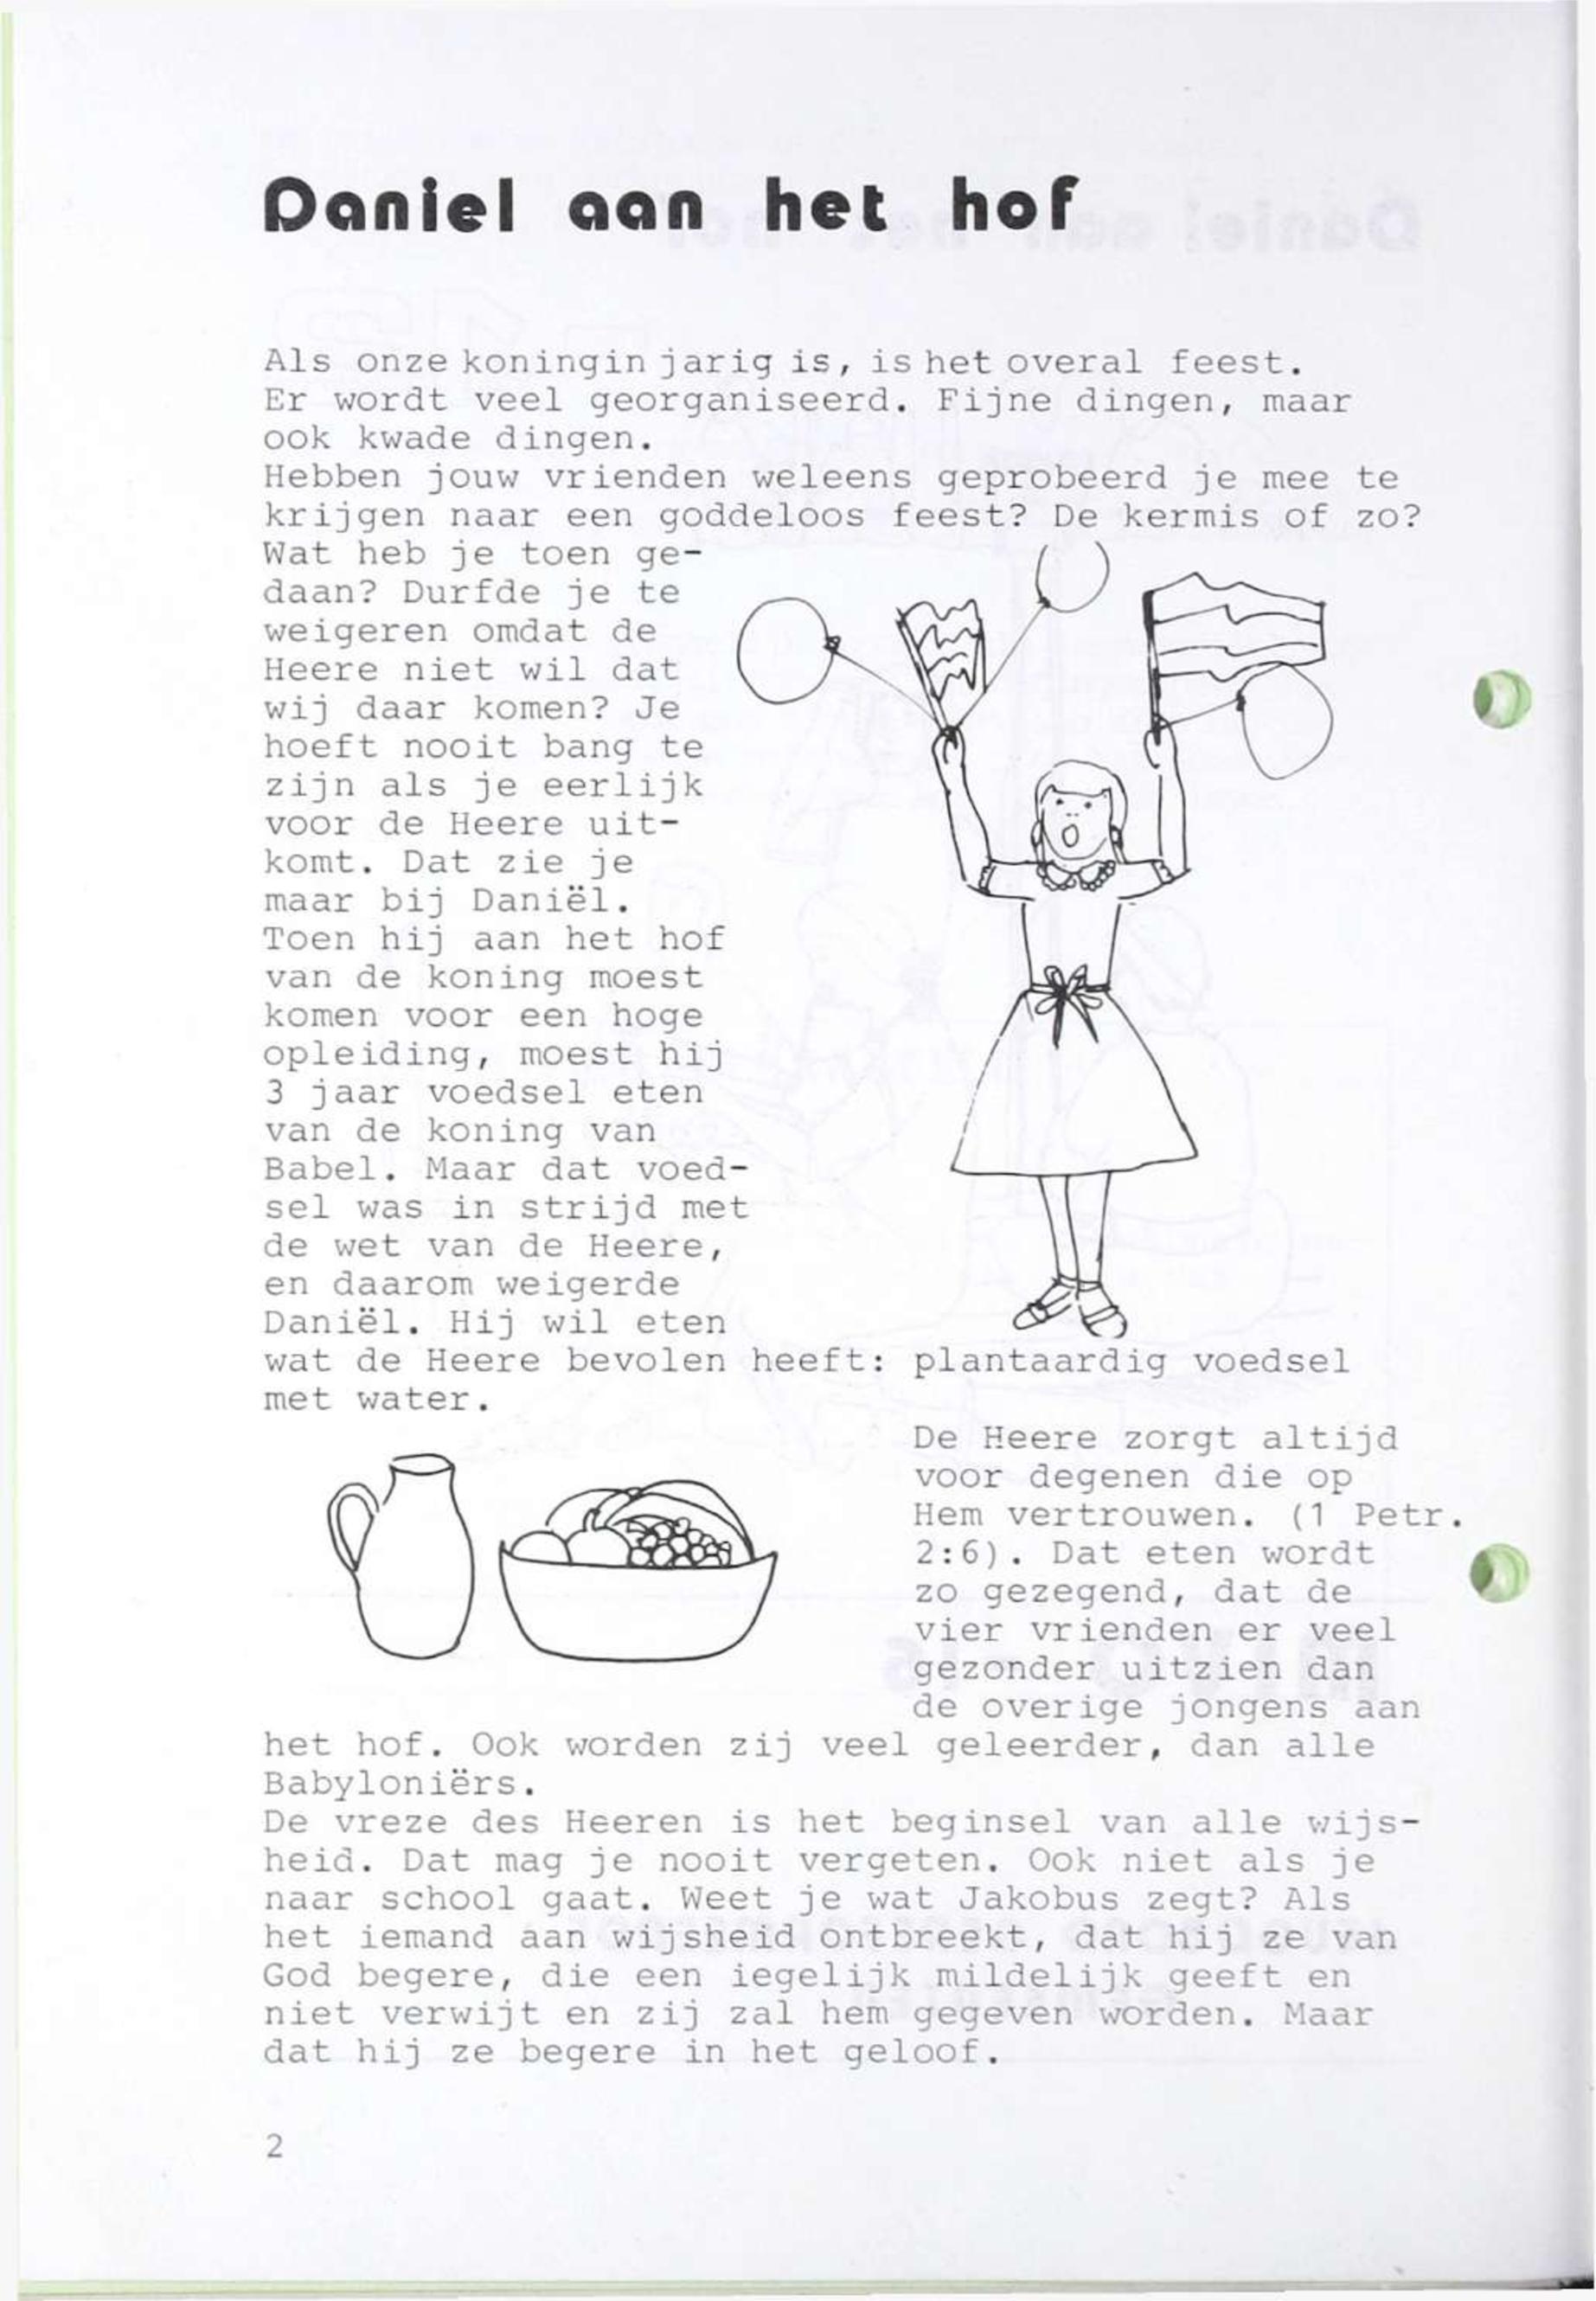 Daniel aan het hof
Als onze koningin jarig is, is het overal feest.
Er wordt veel georganiseerd. Fijne dingen, maar
ook kwade dingen.
Hebben jouw vrienden weleens geprobeerd je mee te
krijgen naar een goddeloos feest? De kermis of zo?
Wat heb je toen ge-
daan? Durfde je te
weigeren omdat de
Heere niet wil dat
wij daar komen? Je
hoeft nooit bang te
zijn als je eerlijk
voor de Heere uit-
komt. Dat zie je
maar bij Daniël.
Toen hij aan het hof
van de koning moest
komen voor een hoge
opleiding, moest hij
3 jaar voedsel eten
van de koning van
Babel. Maar dat voed-
sel was in strijd met
de wet van de Heere,
en daarom weigerde
Daniël. Hij wil eten
wat de Heere bevolen heeft: plantaardig voedsel
met water.
De Heere zorgt altijd
voor degenen die op
Hem vertrouwen. (1 Petr.
2:6). Dat eten wordt
zo gezegend, dat de
vier vrienden er veel
gezonder uitzien dan
de overige jongens aan
het hof. Ook worden zij veel geleerder, dan alle
Babyloniërs.
De vreze des Heeren is het beginsel van alle wijs-
heid. Dat mag je nooit vergeten. Ook niet als je
naar school gaat. Weet je wat Jakobus zegt? Als
het iemand aan wijsheid ontbreekt, dat hij ze van
God begere, die een iegelijk mildelijk geeft en
niet verwijt en zij zal hem gegeven worden. Maar
dat hij ze begere in het geloof.
2